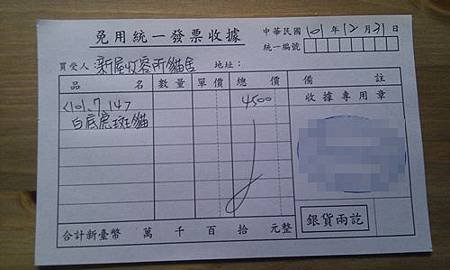 免用統一發票收據
中華民國101年12月31日
統一編號
買受人 新屋收容所貓舍 地址:
品名 數量 單價 總價 備註
<101.7.14> 4500 收據專用章
白底虎斑貓
銀貨兩訖
合計新臺幣 萬 千 百 拾 元整